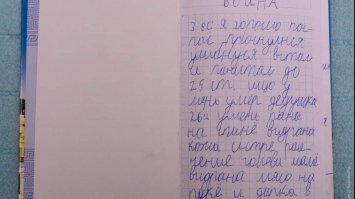 ВОЙНА
Звс. я хорошо пос-
пал, проснулся
улыбнулся встал
и почитал до
25 ст. ищо у
мень умер дедушка
26 умень рана
на спине видрана
кожа систре рас-
чение голова маме
видрана мясо на
руке и дырка в